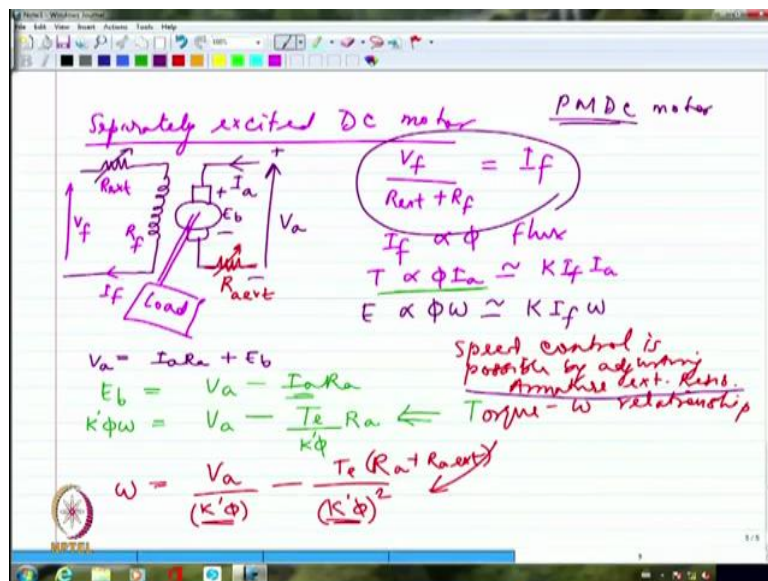 Note1 - Windows Journal
File Edit View Insert Actions Tools Help
100%
B I
PMDC motor
Separately excited DC motor
Rext
Vf
Rf
If
+
Ia
+
Eb
−
Va
−
Raext
Load
Vf / (Rext + Rf) = If
If ∝ φ flux
T ∝ φIa ≃ K If Ia
E ∝ φω ≃ K If ω
Va = IaRa + Eb
Eb = Va − IaRa
K'φω = Va − Te/K'φ Ra ⇐ Torque-ω relationship
Speed control is
possible by adjusting
Armature ext. Resis.
ω = Va/(K'φ) − Te(Ra + Raext)/(K'φ)²
NPTEL
5/5